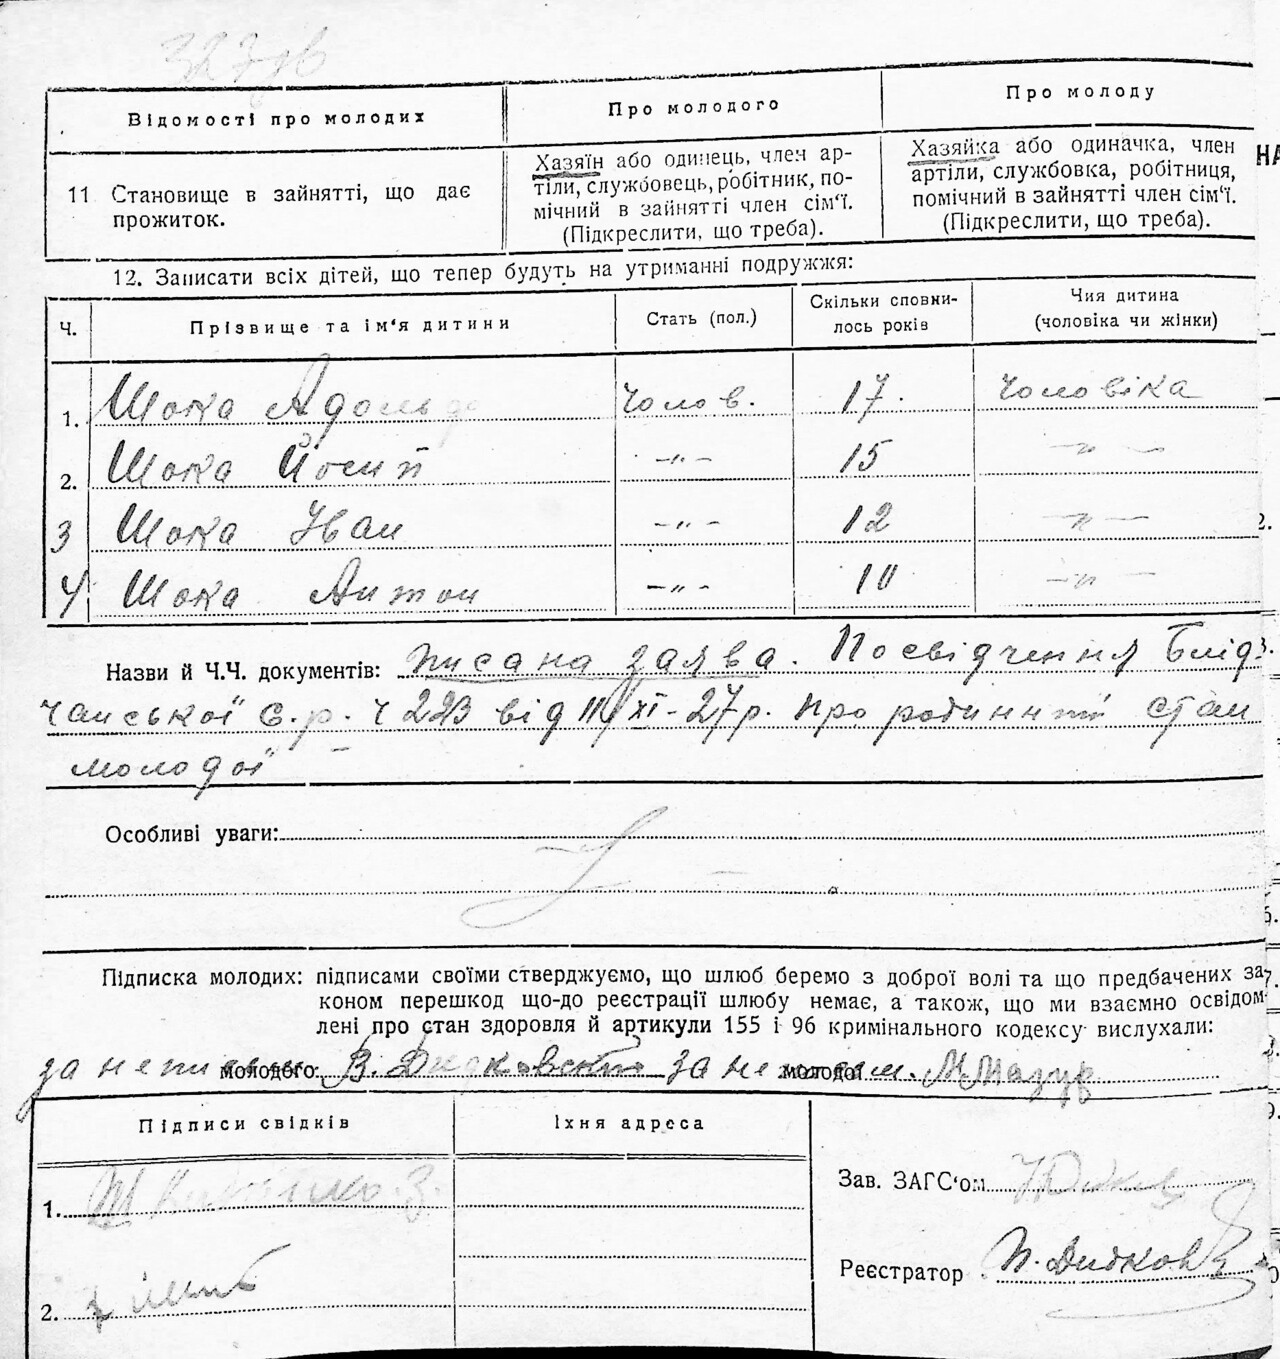 Відомості про молодих
Про молодого
Про молоду
11 Становище в зайнятті, що дає
прожиток.
Хазяїн або одинець, член ар-
тіли, службовець, робітник, по-
мічний в зайнятті член сім'ї.
(Підкреслити, що треба).
Хазяйка або одиначка, член
артіли, службовка, робітниця,
помічний в зайнятті член сім'ї.
(Підкреслити, що треба).
НА
12. Записати всіх дітей, що тепер будуть на утриманні подружжя:
Ч.
Прізвище та ім'я дитини
Стать (пол.)
Скільки сповни-
лось років
Чия дитина
(чоловіка чи жінки)
1. Шока Адольф чолов. 17. чоловіка
2. Шока Йосип —"— 15 —"—
3 Шока Іван —"— 12 —"—
4 Шока Антон —"— 10 —"—
Назви й Ч.Ч. документів: писана заява. Посвідчення
с.р. ч 223 від XI-27р. про родинний стан
молодої
Особливі уваги:
Підписка молодих: підписами своїми стверджуємо, що шлюб беремо з доброї волі та що предбачених за-
коном перешкод що-до реєстрації шлюбу немає, а також, що ми взаємно освідом-
лені про стан здоровля й артикули 155 і 96 кримінального кодексу вислухали:
за неписьм. молодого: В. Дидковський за неписьм. молодої М Мазур
Підписи свідків
Їхня адреса
1.
2.
Зав. ЗАГС'ом
Реєстратор П. Дидков